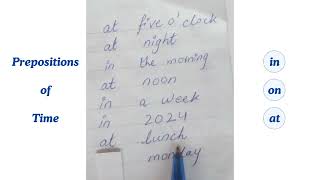 Prepositions
of
Time
at five o'clock
at night
in the morning
at noon
in a week
in 2024
at lunch
monday
in
on
at